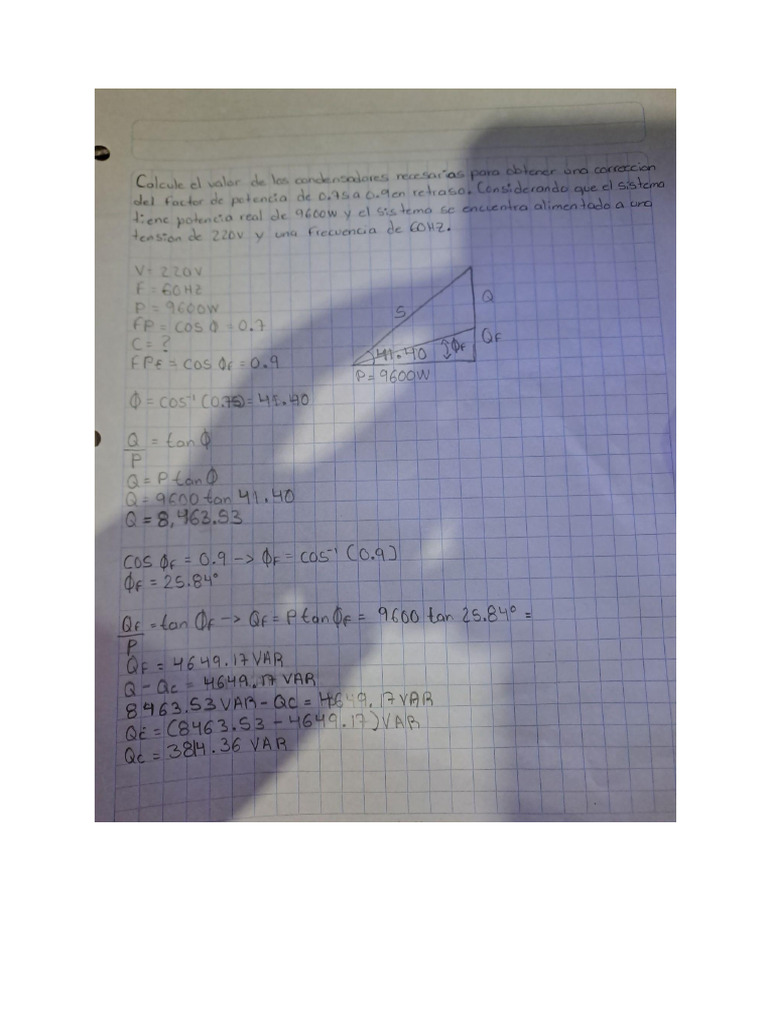 Calcule el valor de los condensadores necesarias para obtener una correccion
del factor de potencia de 0.75 a 0.9 en retraso. Considerando que el sistema
tiene potencia real de 9600W y el sistema se encuentra alimentada a una
tension de 220V y una frecuencia de 60HZ.
V= 220V
F = 60HZ
P = 9600W
FP = COS Φ = 0.7
C = ?
FPF = COS ΦF = 0.9
S
Q
QF
41.40
ΦF
P = 9600W
Φ = COS⁻¹ (0.75) = 41.40
Q/P = tan Φ
Q = P tan Φ
Q = 9600 tan 41.40
Q = 8,463.53
COS ΦF = 0.9 -> ΦF = COS⁻¹ (0.9)
ΦF = 25.84°
QF/P = tan ΦF -> QF = P tan ΦF = 9600 tan 25.84° =
QF = 4649.17 VAR
Q - QC = 4649.17 VAR
8463.53 VAR - QC = 4649.17 VAR
QC = (8463.53 - 4649.17) VAR
QC = 3814.36 VAR